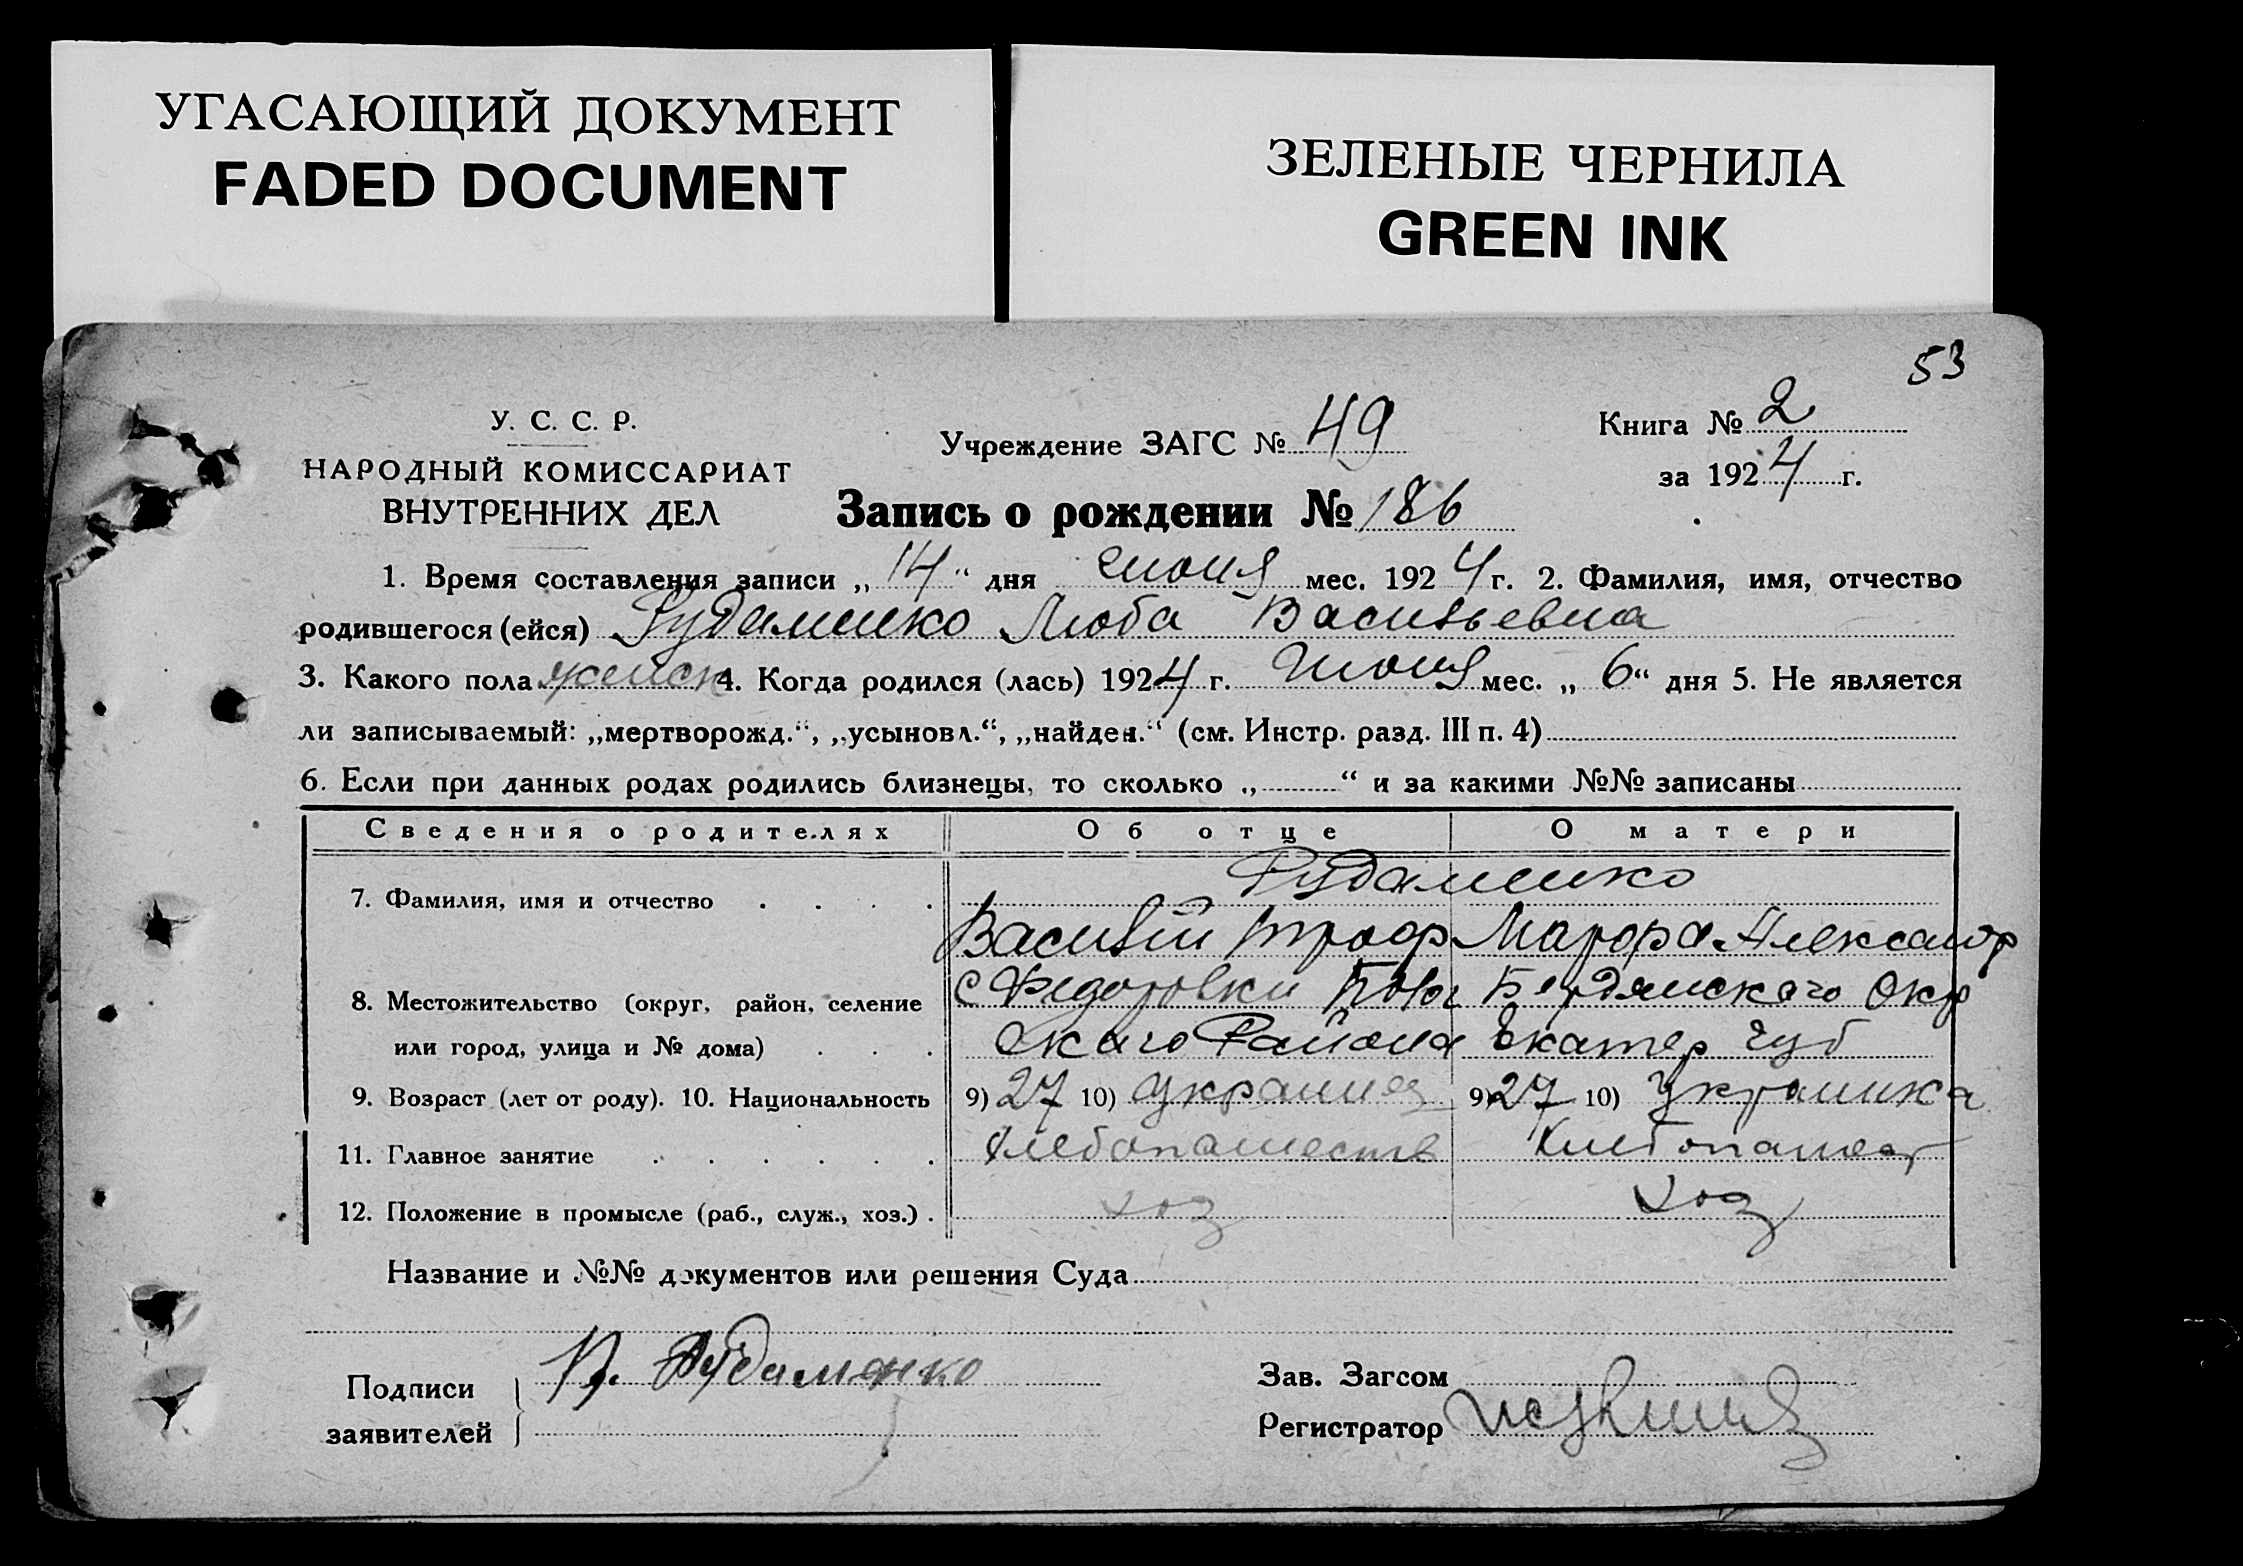 УГАСАЮЩИЙ ДОКУМЕНТ
FADED DOCUMENT
ЗЕЛЕНЫЕ ЧЕРНИЛА
GREEN INK
53
У. С. С. Р.
НАРОДНЫЙ КОМИССАРИАТ
ВНУТРЕННИХ ДЕЛ
Учреждение ЗАГС № 49
Книга № 2
за 1924 г.
Запись о рождении № 186
1. Время составления записи „14“ дня июня мес. 1924 г. 2. Фамилия, имя, отчество
родившегося (ейся) Рудаменко Люба Васильевна
3. Какого пола женск 4. Когда родился (лась) 1924 г. Июня мес. „6“ дня 5. Не является
ли записываемый: „мертворожд.“, „усыновл.“, „найден.“ (см. Инстр. разд. III п. 4)
6. Если при данных родах родились близнецы, то сколько „ “ и за какими №№ записаны
Сведения о родителях Об отце О матери
Рудаменко
7. Фамилия, имя и отчество
Василий Троф Александр
С Федоровки Бердянского Окр
8. Местожительство (округ, район, селение
или город, улица и № дома)
скаго Района Екатер губ
9. Возраст (лет от роду). 10. Национальность 9) 27 10) украинец 9) 27 10) Украинка
11. Главное занятие хлебопашеств Хлебопашест
12. Положение в промысле (раб., служ., хоз.) . хоз хоз
Название и №№ документов или решения Суда
Подписи
заявителей
В. Рудаменко
Зав. Загсом
Регистратор